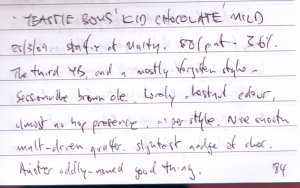 'YEASTIE BOYS' 'KID CHOCOLATE' MILD
25/3/09. of Malty. 3.6%.
The third YB, and a mostly forgotten style -
Sessionable brown ale. Lovely chestnut colour,
almost no hop presence, as per style. Nice smooth
malt-driven quaffer. slightest nudge of choc.
Another oddly-named good thing. 84